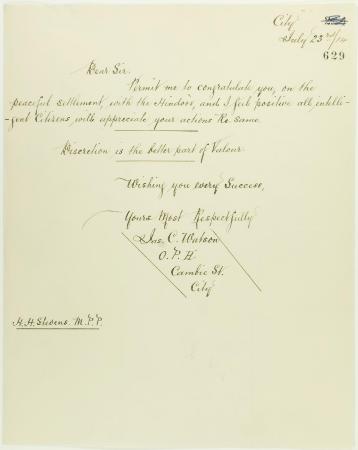 City
July 23rd/14
629
Dear Sir.
Permit me to congratulate you, on the
peaceful settlement, with the Hindoos, and I feel positive all intelli-
-gent Citizens, will appreciate your actions Re same.
Discretion is the better part of Valour.
Wishing you every Success,
Yours Most Respectfully
Jas. C. Watson
O. P. H.
Cambie St.
City
H. H. Stevens. M. P. P.